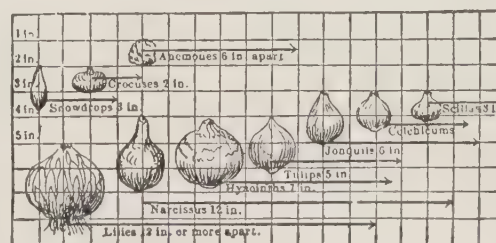 1 in.
Anemones 6 in. apart
2 in.
Crocuses 2 in.
3 in.
Snowdrops 3 in.
Scillas 3 i
4 in.
Colchicums
5 in.
Jonquils 6 in.
Tulips 5 in.
Hyacinths 7 in.
Narcissus 12 in.
Lilies 12 in. or more apart.